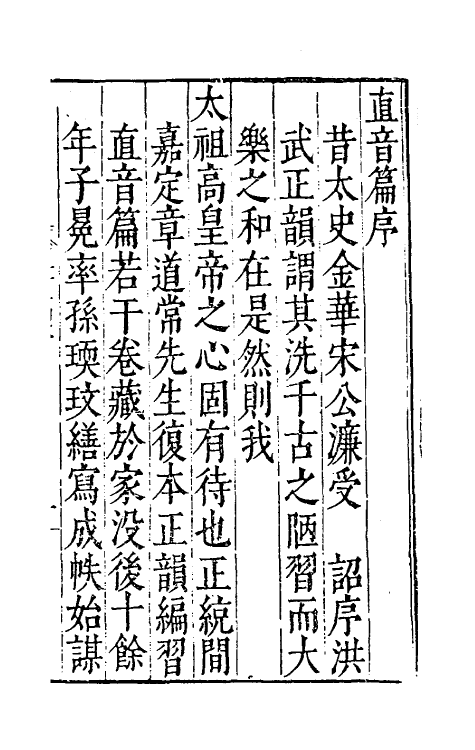 直音篇序
昔太史金華宋公濂受　詔序洪
武正韻謂其洗千古之陋習而大
樂之和在是然則我
太祖高皇帝之心固有待也正統間
嘉定章道常先生復本正韻編習
直音篇若干卷藏於家没後十餘
年子冕率孫瑛玟繕寫成帙始謀